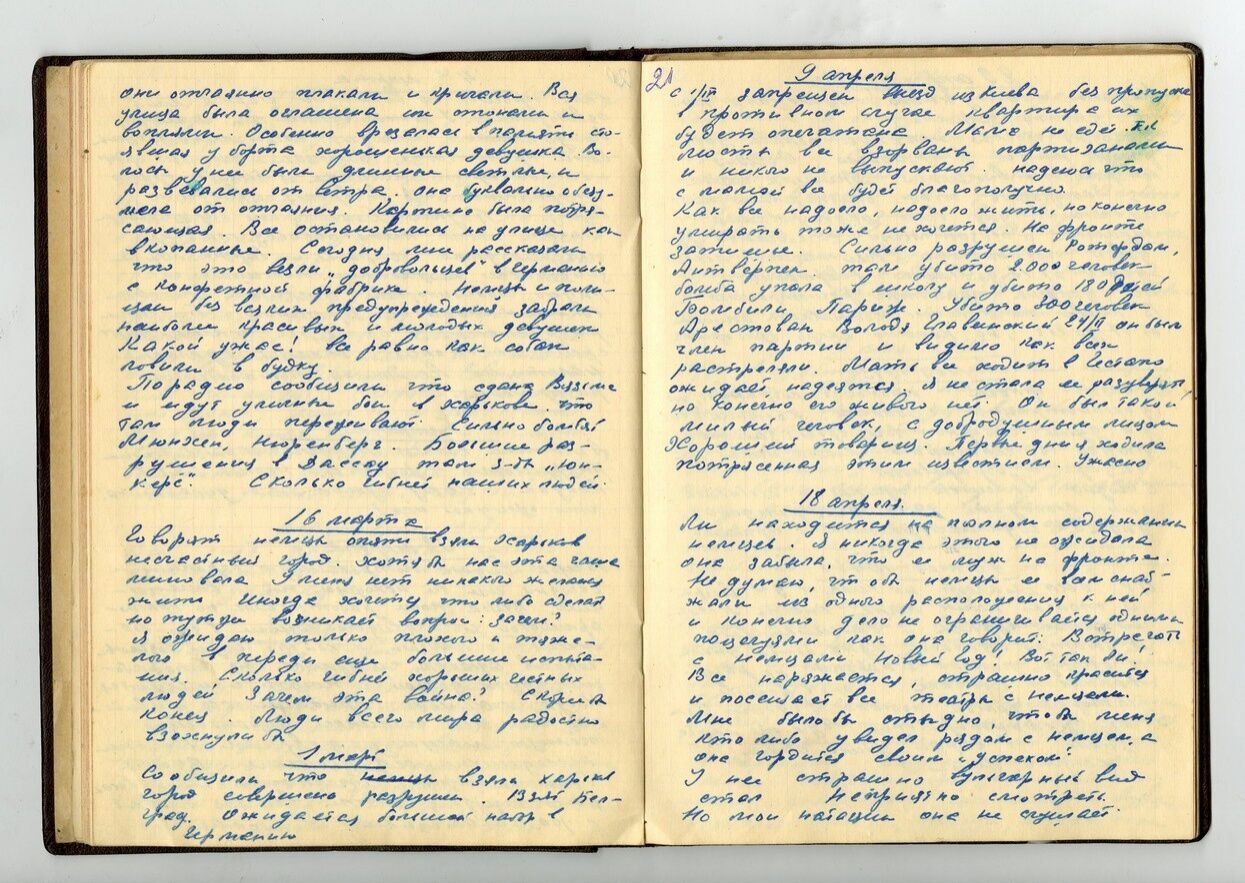 они отчаянно плакали и кричали. Вся
улица была оглашена их стонами и
воплями. Особенно врезалась в память сто-
явшая у борта хорошенькая девушка. Во-
лосы у неё были длинные светлые, и
развевались от ветра. она буквально обезу-
мела от отчаяния. Картина была потря-
сающая. Все остановились на улице как
вкопанные. Сегодня мне рассказали
что это везли „добровольцев" в Германию
с конфетной фабрики. Немцы и поли-
цаи без всяких предупреждений забрали
наиболее красивых и молодых девушек
Какой ужас! все равно как собак
ловили в будку.
По радио сообщили что сдана Вязьма
и идут уличные бои в Харькове. что
там люди переживают. Сильно бомбят
Мюнхен, Нюренберг. Большие раз-
рушения в Дассау там з-ды „Юн-
керс". Сколько гибнет наших людей.
16 марта
Говорят немцы опять взяли Харьков
несчастный город. Хотя бы нас эта чаша
миновала У меня нет никакого желания
жить Иногда хочется что либо сделать
но тут же возникает вопрос: зачем?
Я ожидаю только плохого и тяже-
лого впереди еще большие испыта-
ния. Сколько гибнет хороших честных
людей Зачем эта война? Скорей бы
конец. Люди всего мира радостно
вздохнули бы
1 март
Сообщили что немцы взяли Харьков
город совершено разрушен. Взят Бел-
град. Ожидается большой набор в
Германию
21
9 апреля
С 1/IV запрещен выезд из Киева без пропуска
в противном случае квартира их
будет опечатана. Мама не едет.
мосты все взорваны партизанами
и никого не выпускают. надеюсь что
с мамой все будет благополучно.
Как все надоело, надоело жить, но конечно
умирать тоже не хочется. На фронте
затишье. Сильно разрушен Ротердам,
Антверпен. там убито 2.000 человек
бомба упала в школу и убито 180 детей
Бомбили Париж. Убито 300 человек
Арестован Володя 24/II он был
член партии и видимо как всех
расстреляли. Мать все ходит в Гестапо
ожидает надеятся. Я не стала ее разуверять,
но конечно его живого нет. Он был такой
милый человек, с добродушным лицом
Хороший товарищ. Первые дни я ходила
потрясенная этим известием. Ужасно
18 апреля.
Ли находится на полном содержании
немцев. Я никогда этого не ожидала
она забыла, что ее муж на фронте.
Не думаю, что бы немцы ее всем снаб-
жали из одного расположения к ней
и конечно дело не ограничивается одними
поцелуями как она говорит. Встречать
с немцами Новый Год! Вот так Ли!
Все наряжается, страшно красится
и посещает все театры с немцами.
Мне было бы стыдно, чтобы меня
кто либо увидел рядом с немцем, а
она гордится своим „успехом"
У нее страшно вульгарный вид
стал Неприятно смотреть.
Но мои натации она не слушает.